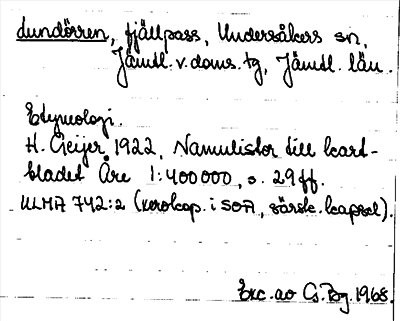 Lundörren, fjällpass, Undersåkers sn,
Jämtl. v. doms. tg, Jämtl. län.
Etymologi.
H. Geijer 1922, Namnlistor till kart-
bladet Åre 1:400000, s. 29 ff.
ULMA 742:2 (xerokop. i SOA, särsk. kapsel).
Exc. av G. Bg. 1968.